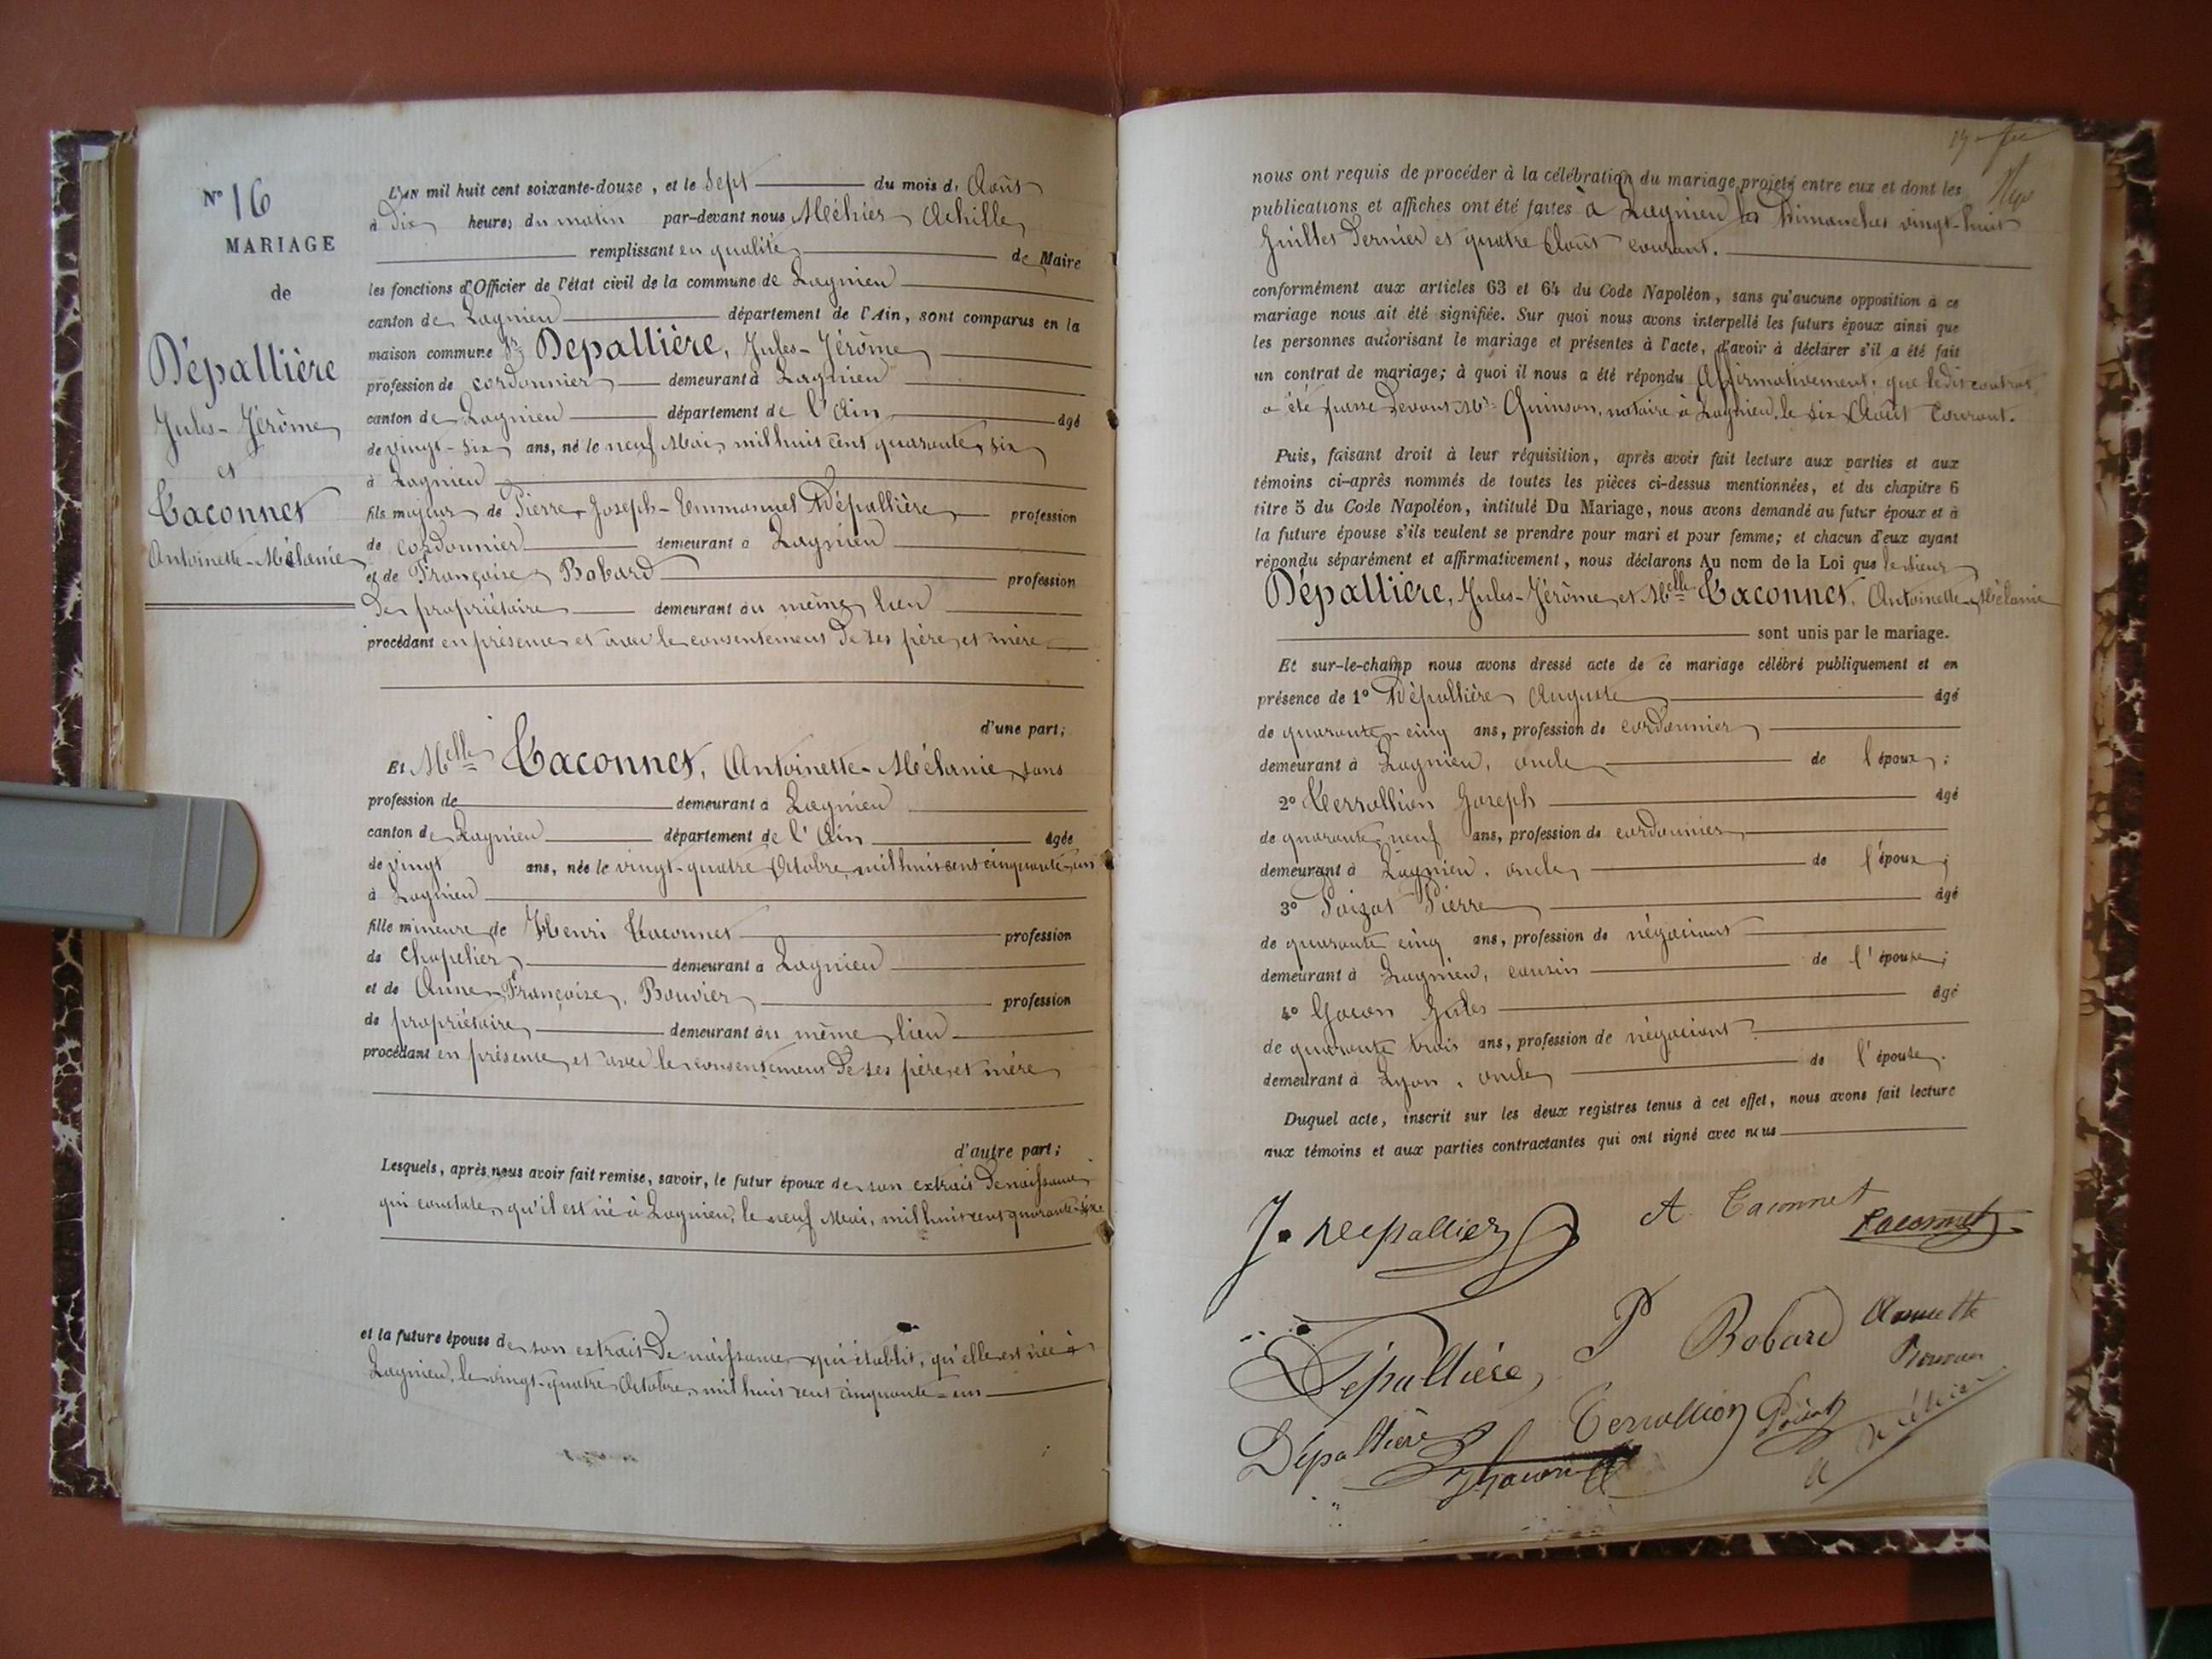 N° 16
MARIAGE
de
Dépallière
Jules-Jérôme
et
Taconnet
Antoinette-Mélanie
L'AN mil huit cent soixante-douze, et le Sept du mois d' Août
à Dix heures du matin par-devant nous Méhier Achille
remplissant en qualité de Maire
les fonctions d'Officier de l'état civil de la commune de Lagnieu
canton de Lagnieu département de l'Ain, sont comparus en la
maison commune Sr Depallière, Jules-Jérôme
profession de cordonnier demeurant à Lagnieu
canton de Lagnieu département de l'Ain âgé
de vingt-six ans, né le neuf Mai, mil huit cent quarante six
à Lagnieu
fils majeur de Pierre Joseph-Emmanuel Dépallière profession
de cordonnier demeurant à Lagnieu
et de Françoise Bobard profession
De propriétaire demeurant au même lieu
procédant en présence et avec le consentement De ses père et mère
d'une part;
Et Melle Taconnet, Antoinette-Mélanie, sans
profession de demeurant à Lagnieu
canton de Lagnieu département de l'Ain âgée
de vingt ans, née le vingt-quatre Octobre, mil huit cent cinquante-un
à Lagnieu
fille mineure de Henri Taconnet profession
de Chapelier demeurant à Lagnieu
et de Anne-Françoise, Bouvier profession
de propriétaire demeurant au même lieu
procédant en présence et avec le consentement De ses père et mère
d'autre part;
Lesquels, après nous avoir fait remise, savoir, le futur époux de son extrait De naissance
qui constate, qu'il est né à Lagnieu, le neuf Mai, mil huit cent quarante-six
et la future épouse de son extrait De naissance qui établit, qu'elle est née à
Lagnieu, le vingt-quatre Octobre, mil huit cent cinquante-un
nous ont requis de procéder à la célébration du mariage projeté entre eux et dont les
publications et affiches ont été faites à Lagnieu les Dimanches vingt-huit
Juillet Dernier et quatre Août courant.
conformément aux articles 63 et 64 du Code Napoléon, sans qu'aucune opposition à ce
mariage nous ait été signifiée. Sur quoi nous avons interpellé les futurs époux ainsi que
les personnes autorisant le mariage et présentes à l'acte, d'avoir à déclarer s'il a été fait
un contrat de mariage; à quoi il nous a été répondu Affirmativement, que ledit contrat
a été passé Devant Me Quinson, notaire à Lagnieu, le six Août Courant.
Puis, faisant droit à leur réquisition, après avoir fait lecture aux parties et aux
témoins ci-après nommés de toutes les pièces ci-dessus mentionnées, et du chapitre 6
titre 5 du Code Napoléon, intitulé Du Mariage, nous avons demandé au futur époux et à
la future épouse s'ils veulent se prendre pour mari et pour femme; et chacun d'eux ayant
répondu séparément et affirmativement, nous déclarons Au nom de la Loi que le sieur
Dépallière, Jules-Jérôme, et Melle Taconnet, Antoinette Mélanie
sont unis par le mariage.
Et sur-le-champ nous avons dressé acte de ce mariage célébré publiquement et en
présence de 1° Dépallière Auguste âgé
de quarante-cinq ans, profession de cordonnier
demeurant à Lagnieu, oncle de l'époux;
2° Terrollion Joseph âgé
de quarante-neuf ans, profession de cordonnier
demeurant à Lagnieu, oncle de l'époux;
3° Poizat Pierre âgé
de quarante cinq ans, profession de négociant
demeurant à Lagnieu, cousin de l'épouse;
4° Gacon Jules âgé
de quarante trois ans, profession de négociant
demeurant à Lyon, oncle de l'épouse.
Duquel acte, inscrit sur les deux registres tenus à cet effet, nous avons fait lecture
aux témoins et aux parties contractantes qui ont signé avec nous
J. Depallier A. Taconnet
Taconnet
Dépallière F Bobard
Dépallière Terrollion